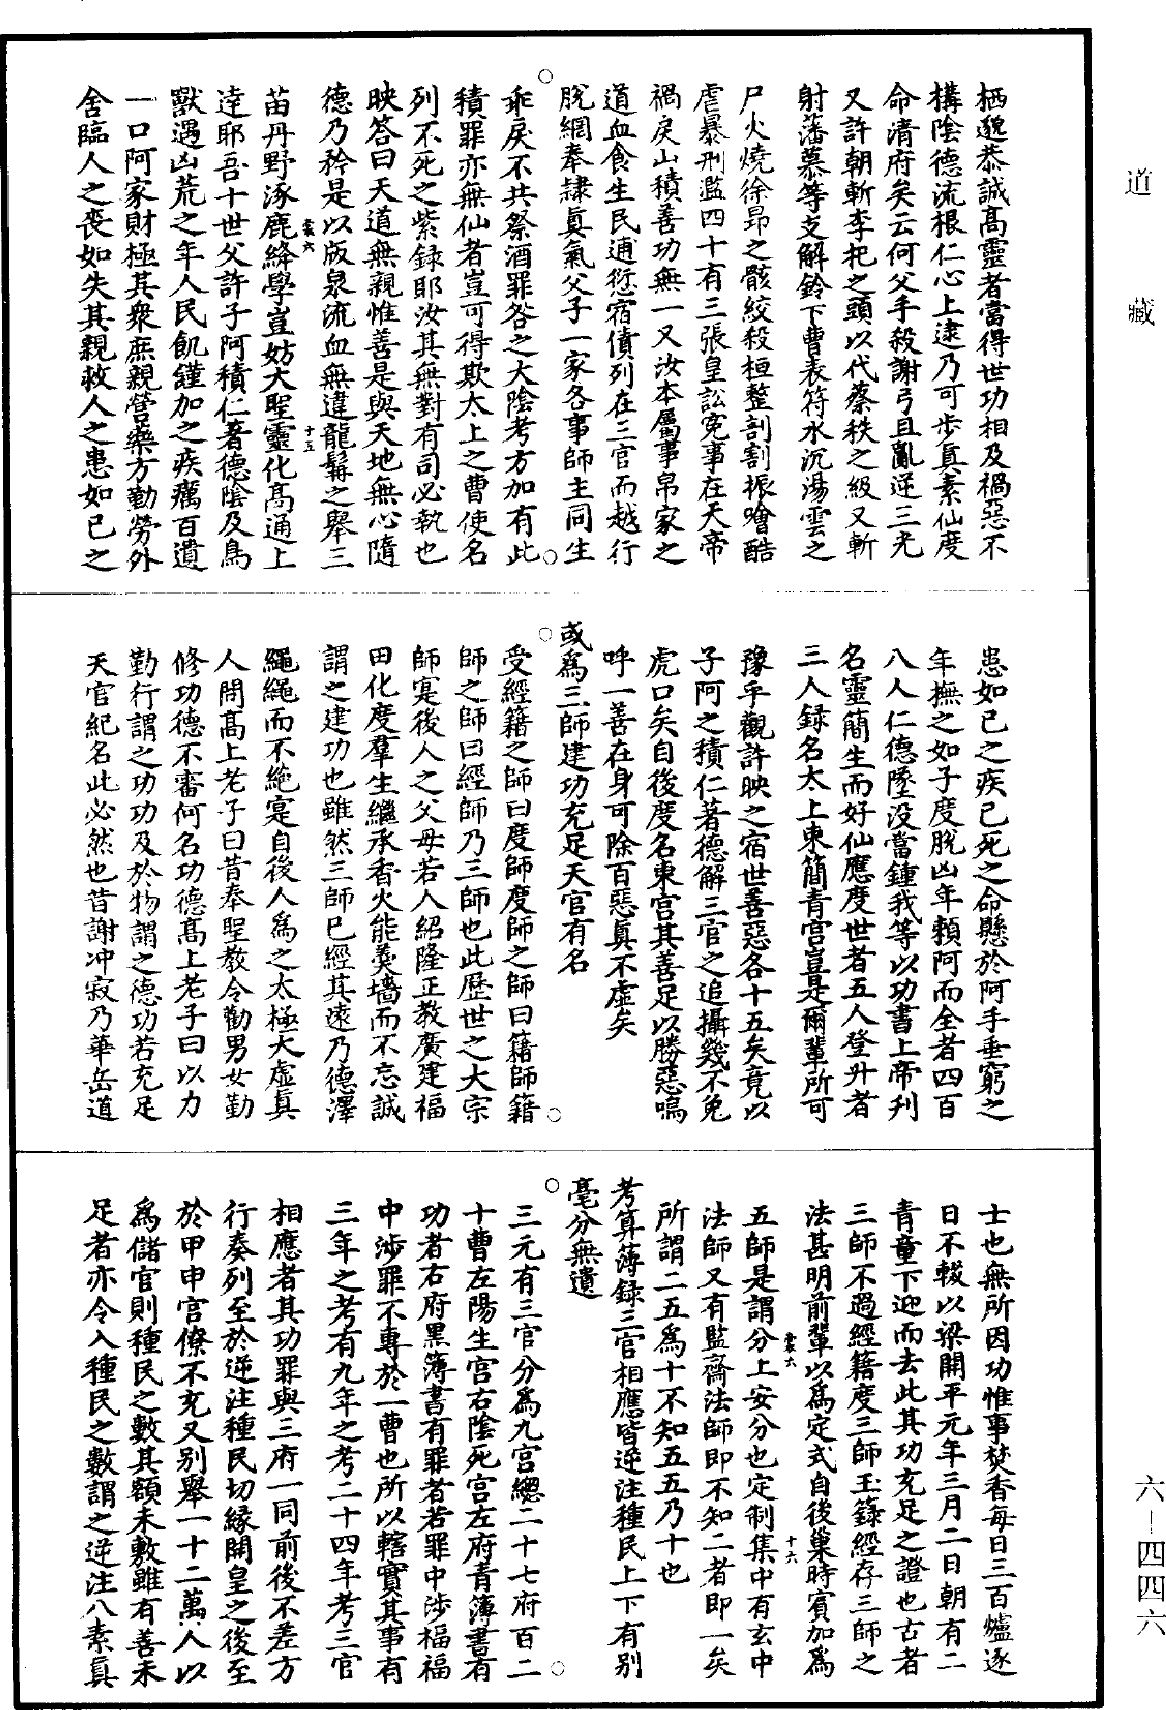 栖邈恭誠高靈者當得世功相及禍惡不
構陰德流根仁心上逮乃可步真素仙度
命清府矣云何父手殺謝弓且亂逆三光
又許朝斬李把之頭以代蔡秩之級又斬
射藩慕等支解鈴下曹表符水沉湯雲之
尸火燒徐昂之骸絞殺桓整刲割振噲酷
虐暴刑濫四十有三張皇訟寃事在天帝
禍戾山積善功無一又汝本屬事帛家之
道血食生民逋愆宿債列在三官而越行
脫網奉隸眞氣父子一家各事師主同生
乖戾不共祭酒罪咎之大陰考方加有此
積罪亦無仙者豈可得欺太上之曹使名
列不死之紫録耶汝其無對有司必執也
映答曰天道無親惟善是與天地無心隨
德乃矜是以版泉流血無違龍髯之舉三
苗丹野涿鹿絳學豈妨大聖靈化高通上
逵耶吾十世父許子阿積仁著德陰及鳥
獸遇凶荒之年人民飢饉加之疾癘百遺
一口阿家財極其衆庶親營藥方勤勞外
舍臨人之喪如失其親救人之患如己之
患如己之疾已死之命懸於阿手垂窮之
年撫之如子度脫凶年賴阿而全者四百
八人仁德墜没當鍾我等以功書上帝刋
名靈簡生而好仙應度世者五人登升者
三人録名太上東簡青宫豈是爾輩所可
豫乎觀許映之宿世善惡各十五矣竟以
子阿之積仁著德解三官之追攝幾不免
虎口矣自後度名東宫其善足以勝惡嗚
呼一善在身可除百惡眞不虛矣
或爲三師建功充足天官有名
受經籍之師曰度師度師之師曰籍師籍
師之師曰經師乃三師也此歷世之大宗
師寔後人之父母若人紹隆正教廣建福
田化度羣生繼承香火能羮墻而不忘誠
謂之建功也雖然三師已經其遠乃德澤
繩繩而不絶寔自後人爲之太極大虛真
人問高上老子曰昔奉聖教令勸男女勤
修功德不審何名功德高上老子曰以力
勤行謂之功功及於物謂之德功若充足
天官紀名此必然也昔謝冲寂乃華岳道
士也無所因功惟事焚香每日三百爐逐
日不輟以梁開平元年三月二日朝有二
青童下迎而去此其功充足之證也古者
三師不過經籍度三師玉籙經存三師之
法甚明前輩以爲定式自後巢時賓加爲
五師是謂分上安分也定制集中有玄中
法師又有監齋法師即不知二者即一矣
所謂二五爲十不知五五乃十也
考算薄録三官相應皆逆注種民上下有别
毫分無遺
三元有三官分爲九宫總二十七府百二
十曹左陽生宫右陰死宫左府青薄書有
功者右府黑簿書有罪者若罪中涉福福
中涉罪不專於一曹也所以轄實其事有
三年之考有九年之考二十四年考三官
相應者其功罪與三府一同前後不差方
行奏列至於逆注種民切緣開皇之後至
於甲申宫僚不充又別舉一十二萬人以
爲儲官則種民之數其額未敷雖有善未
足者亦令入種民之數謂之逆注八素真
道
藏
六—四四六
十五
十六